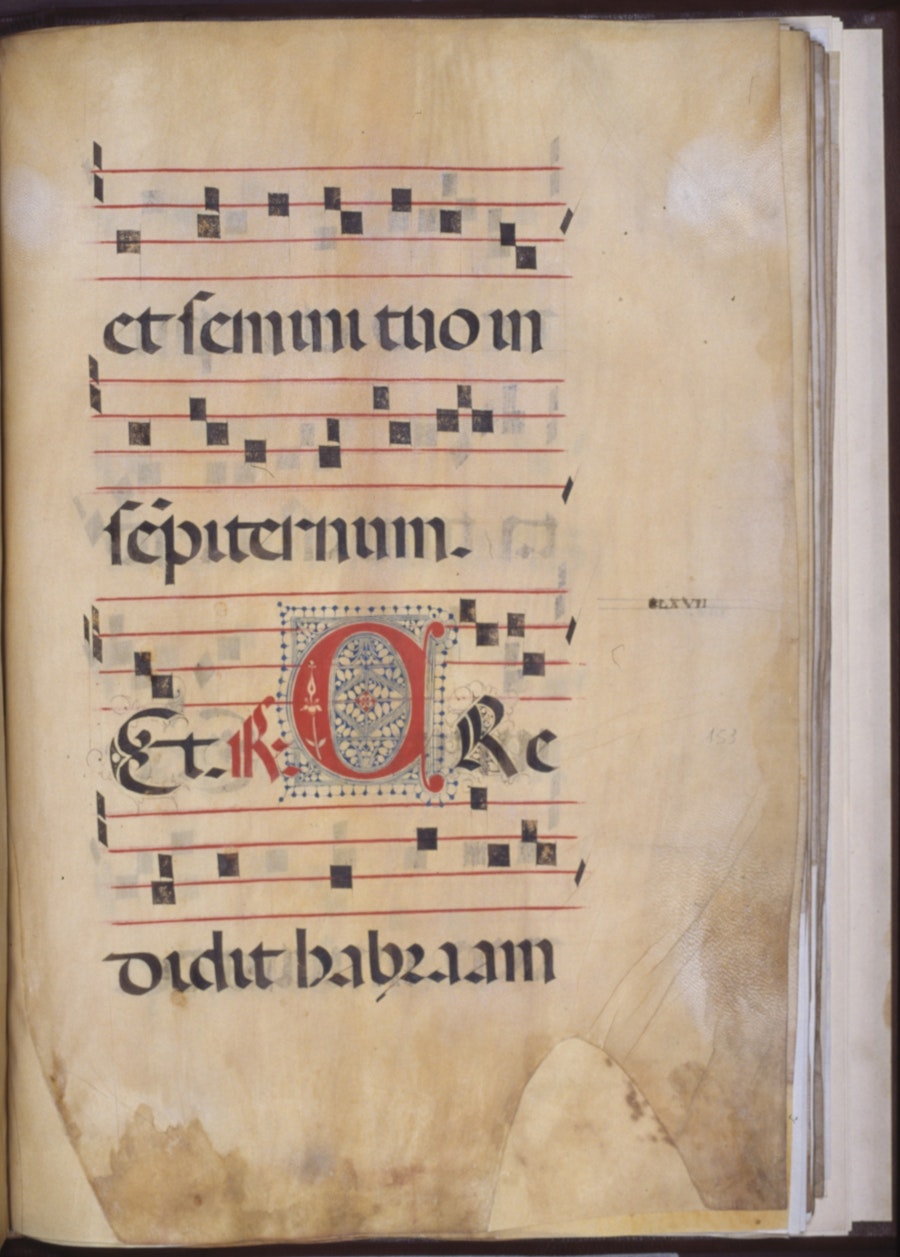 et semini tuo in
sēpiternum.
Et. R. CRe
didit habraam
CLXVII
153